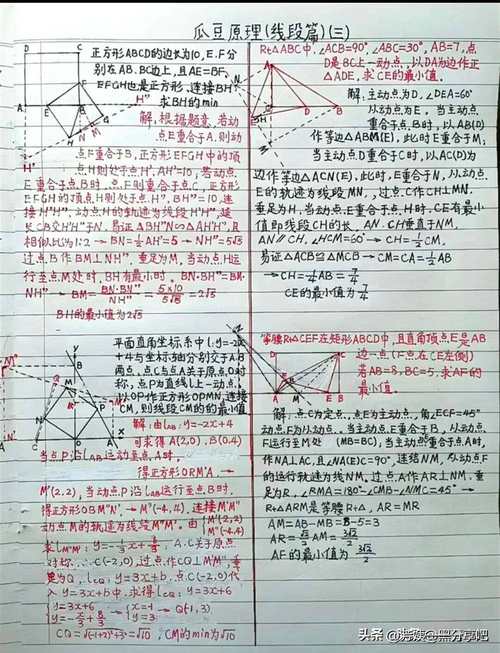 瓜豆原理(线段篇)(三)
正方形ABCD的边长为10,E.F分
别在AB.BC边上,且AE=BF.
EFGH也是正方形,连接BH
求BH的min
解,根据题意.若动
点E重合于A.则动
点F重合于B,正方形EFGH中的顶
点H则处于点H',AH'=10,若动点
E重合于点B时.点F则重合于点C,正方形
EFGH的顶点H则处于点H",BH"=10,连
接H'H",动点H的轨迹为线段H'H",延
长CB交H'H"于N.易证△BH"N∽△AH'H",且
相似比为1:2→BN=½AH'=5→NH"=5√5
过点B作BM⊥NH",垂足为M,当动点H运
行至点M处时,BH有最小时。BN·BH"=BM·
NH"→BM=BN·BH"/NH"=5×10/5√5=2√5
BH的最小值为2√5
Rt△ABC中,∠ACB=90°,∠ABC=30°,AB=7,点
D是BC上一动点,以DA为边作正
△ADE,求CE的最小值.
解,主动点为D,∠DEA=60°
从动点为E,当主动点
重合于点B时,以AB(D)
作等边△ABM(E),此时E重合于M;
当主动点D重合于C时,以AC(D)为
边作等边△ACN(E),此时,E重合于N,从动点
E的轨迹为线段MN.,过点C作CH⊥MN.
垂足为H,当动点E重合于点H时,CE有最小
值即线段CH的长,AN、CH垂直于NM,
AN∥CH,∠HCM=60°→CH=½CM.
易证△ACB≌△MCB→CM=CA=½AB
→CH=¼AB=7/4
CE的最小值为7/4
平面直角坐标系中l:y=-2x
+4与坐标轴分别交于A.B
两点,点C与点A关于原点O对
称,点P为直线l上一动点,
以OP作正方形OPMN,连接
CM,则线段CM的最小值
解:由lAB:y=-2x+4
可求得A(2,0).B(0.4)
当点P沿lAB运动至点A时,
得正方形ORM'A.→
M'(2,2),当动点P沿lAB运行至点B时,
得正方形OBM"N'.→M"(-4,4),连接M'M"
动点M的轨迹为线段M'M".由{M'(2,2)
M"(-4.4)
求lM'M":y=-⅓x+8/3.A.C关于原点
对称.∴C(-2,0).过点C作CQ⊥M'M",垂
足为Q,lCQ:y=3x+b.点C(-2,0)代
入y=3x+b中.求得lCQ:y=3x+6
{y=3x+6
y=-x/3+8/3→{x=-1
y=3→Q(-1,3)
CQ=√(-1+2)²+3²=√10,CM的min为√10
等腰Rt△CEF在矩形ABCD中,且直角顶点E是AB
边一点(F点在CE左侧)
若AB=8,BC=5,求AF的
最小值.
解:点C为定点,点E为主动点,角∠ECF=45°
动点F为从动点.当主动点E重合于B,从动点
F运行至M处(MB=BC),当主动点E重合于点A时,
作NA⊥AC,且∠NA(E)C=90°,连结NM,从动点F
的运行轨迹为线NM,过点A作AR⊥NM,垂
足为R,∠RMA=180°-∠CMB-∠NMC=45°→
Rt△ARM是等腰Rt△,AR=MR
AM=AB-MB=8-5=3
AR=√2/2AM=3√2/2
AF的最小值为3√2/2